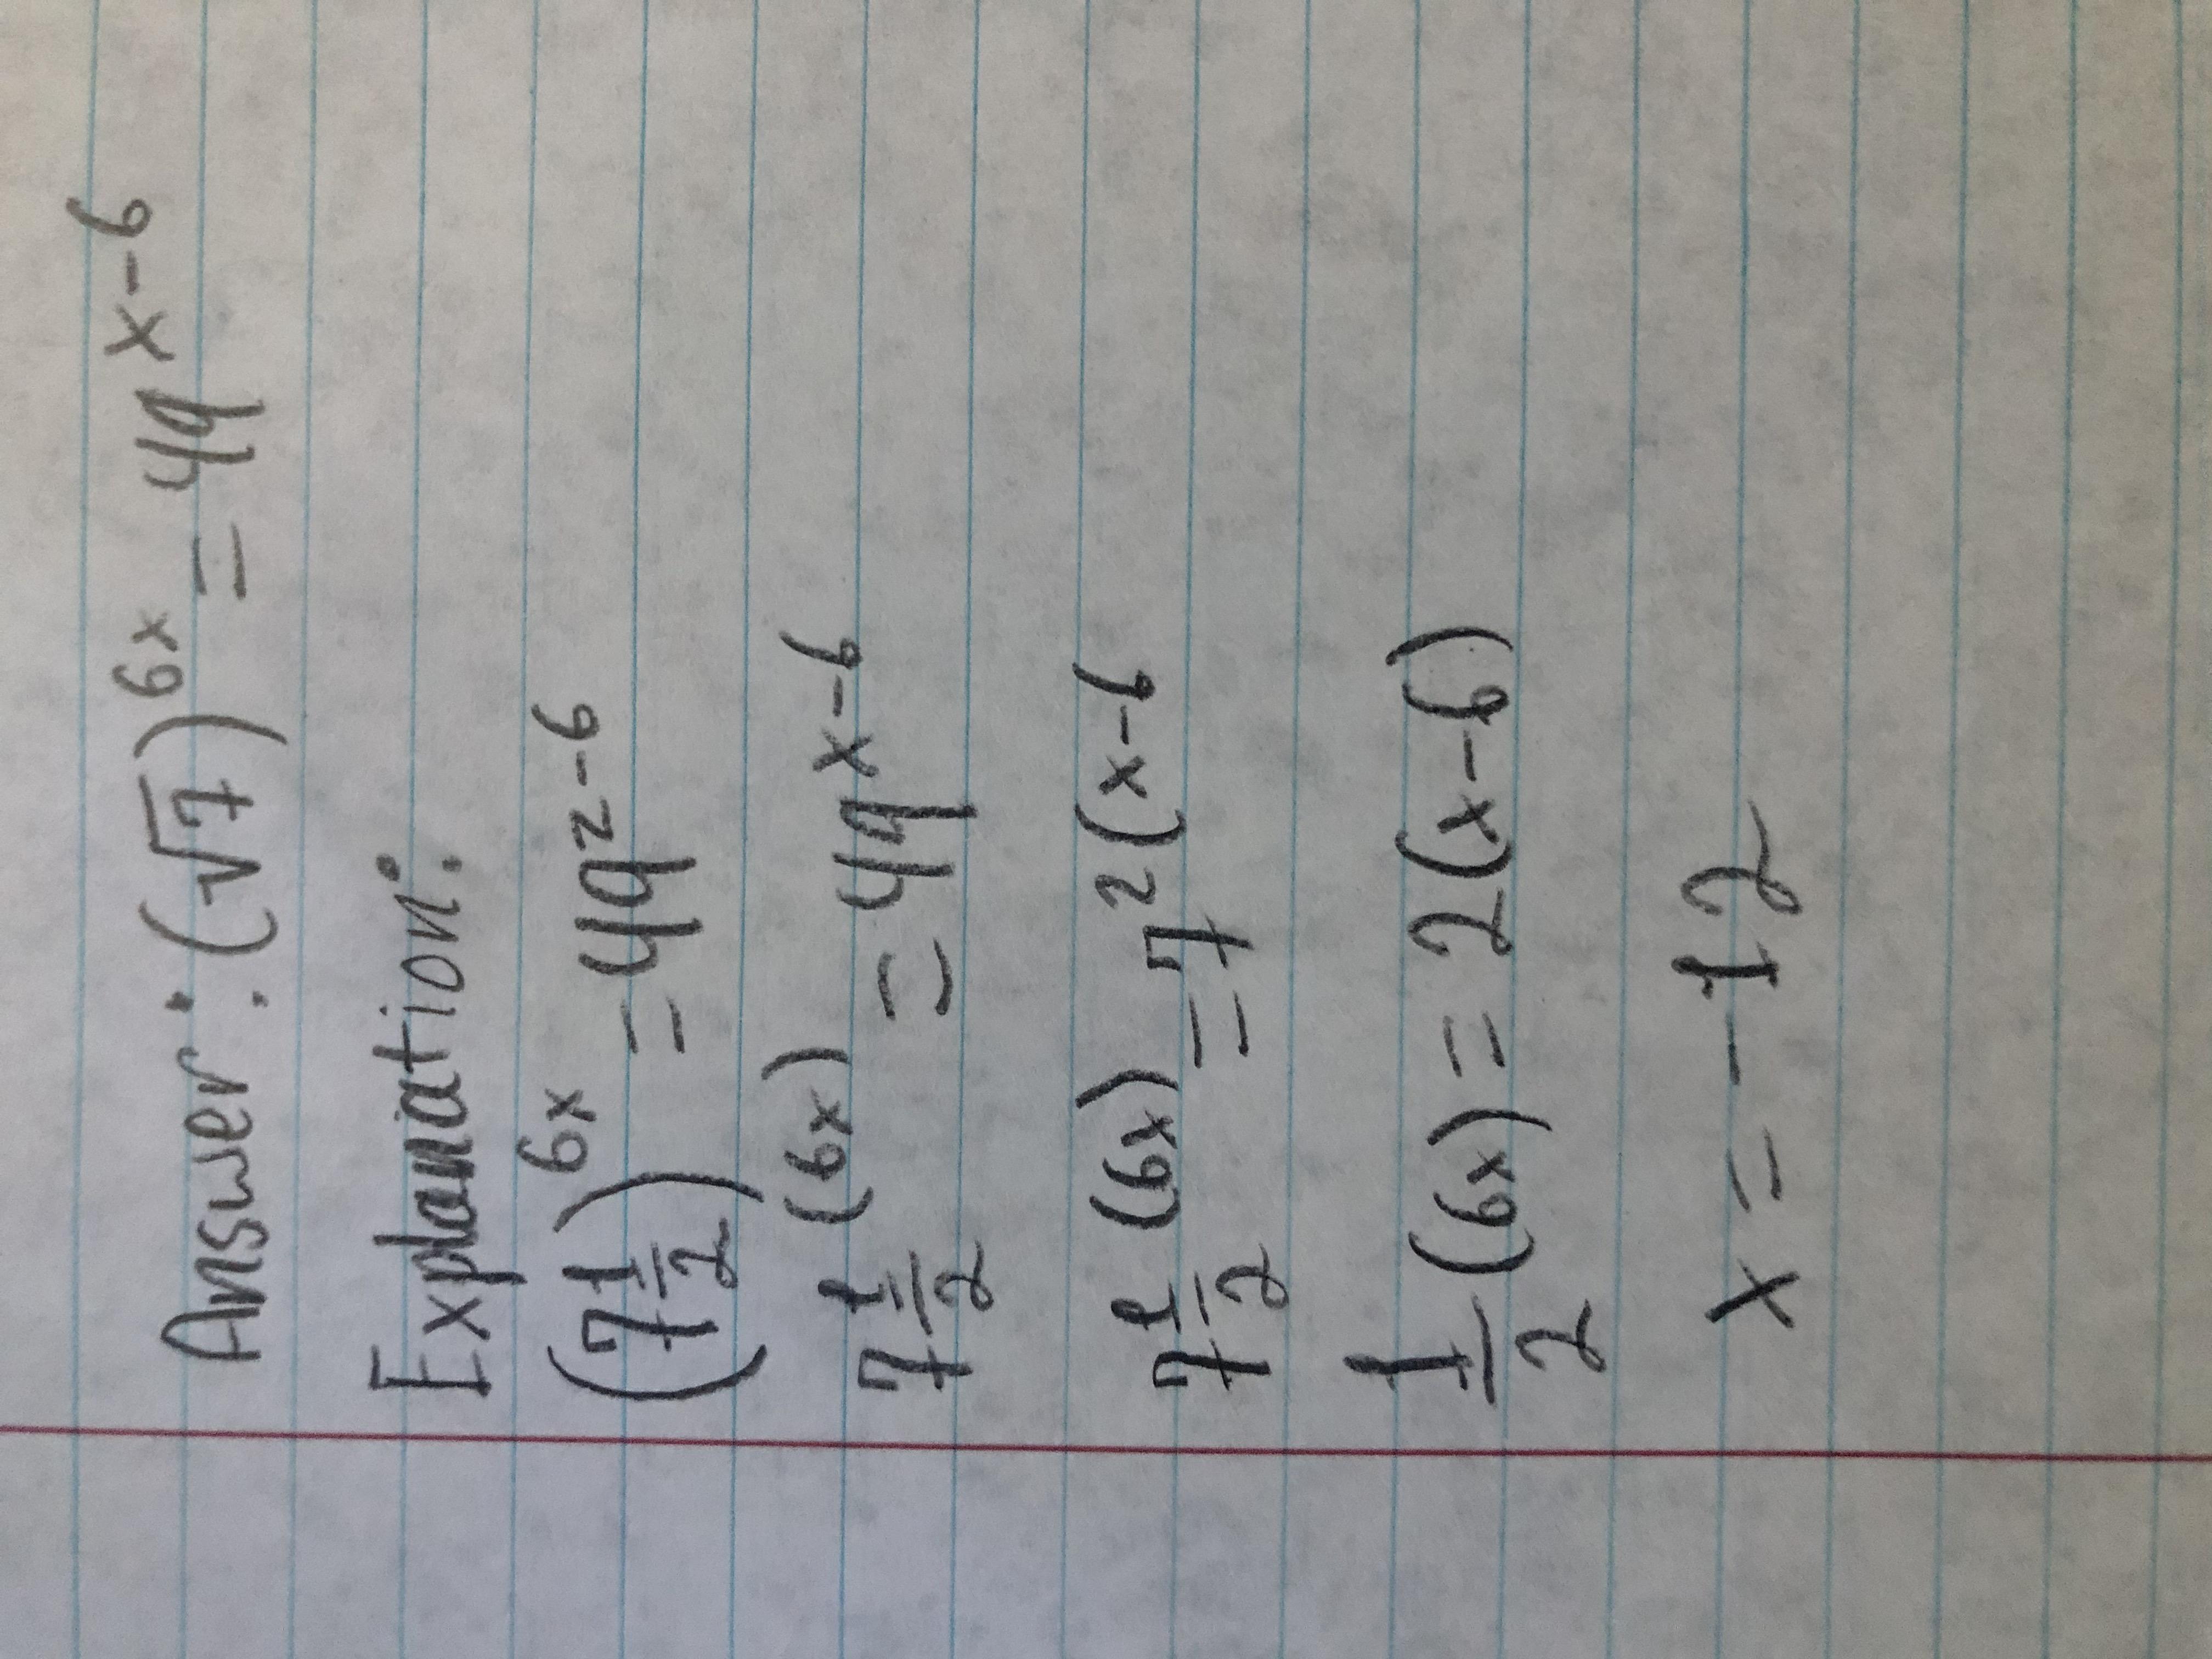 Answer: (√7)^6x = 49^x-6
Explanation:
(7 1/2)^6x = 49^2-6
7 1/2 (6x) = 49^x-6
7 1/2 (6x) = 7^2(x-6
1/2 (6x) = 2(x-6)
x = -12